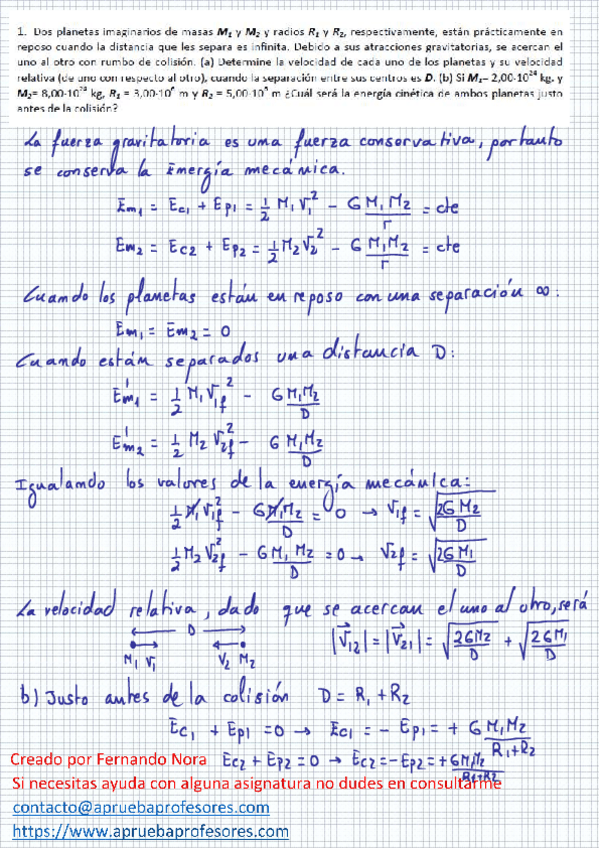 1. Dos planetas imaginarios de masas M₁ y M₂ y radios R₁ y R₂, respectivamente, están prácticamente en
reposo cuando la distancia que les separa es infinita. Debido a sus atracciones gravitatorias, se acercan el
uno al otro con rumbo de colisión. (a) Determine la velocidad de cada uno de los planetas y su velocidad
relativa (de uno con respecto al otro), cuando la separación entre sus centros es D. (b) Si M₁= 2,00·10²⁴ kg. y
M₂= 8,00·10²⁴ kg, R₁ = 3,00·10⁶ m y R₂ = 5,00·10⁶ m ¿Cuál será la energía cinética de ambos planetas justo
antes de la colisión?
La fuerza gravitatoria es una fuerza conservativa, por tanto
se conserva la Energía mecánica.
Em₁ = Ec₁ + Ep₁ = 1/2 M₁V₁² - G M₁M₂/r = cte
Em₂ = Ec₂ + Ep₂ = 1/2 M₂V₂² - G M₁M₂/r = cte
Cuando los planetas están en reposo con una separación ∞.
Em₁ = Em₂ = 0
Cuando están separados una distancia D:
E'm₁ = 1/2 M₁V₁f² - G M₁M₂/D
E'm₂ = 1/2 M₂V₂f² - G M₁M₂/D
Igualando los valores de la energía mecánica:
1/2 M₁V₁f² - G M₁M₂/D = 0 → V₁f = √(2GM₂/D)
1/2 M₂V₂f² - G M₁M₂/D = 0 → V₂f = √(2GM₁/D)
La velocidad relativa, dado que se acercan el uno al otro, será
D
M₁ V₁ V₂ M₂
|V₁₂| = |V₂₁| = √(2GM₂/D) + √(2GM₁/D)
b) Justo antes de la colisión D = R₁ + R₂
Ec₁ + Ep₁ = 0 → Ec₁ = - Ep₁ = + G M₁M₂/R₁+R₂
Ec₂ + Ep₂ = 0 → Ec₂ = -Ep₂ = + G M₁M₂/R₁+R₂
Creado por Fernando Nora
Si necesitas ayuda con alguna asignatura no dudes en consultarme
contacto@apruebaprofesores.com
https://www.apruebaprofesores.com